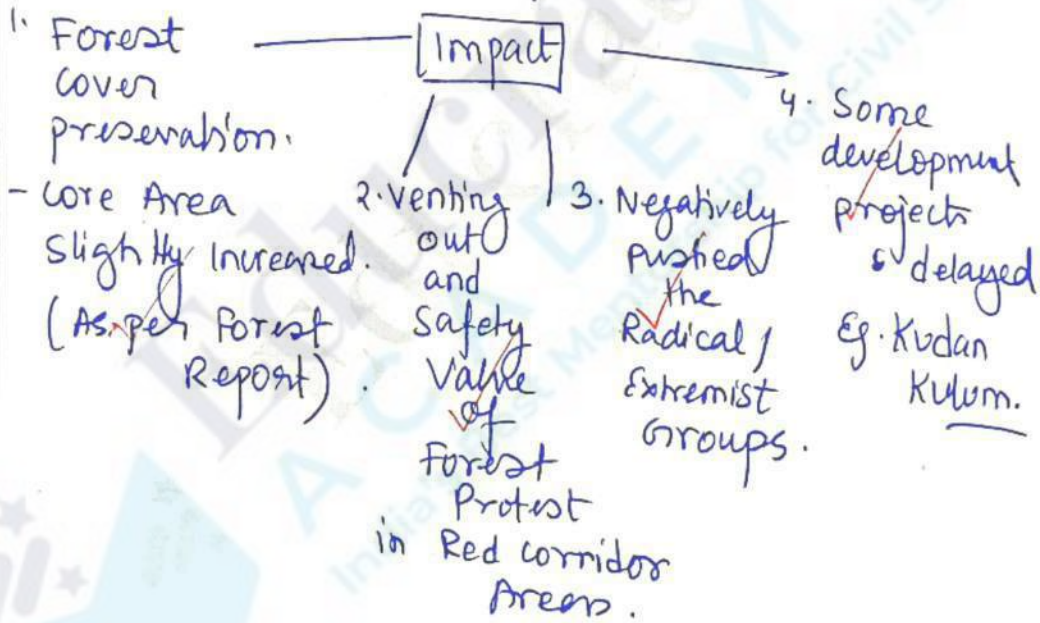 Impact
1. Forest
cover
preservation.
- Core Area
Slightly Increased.
(As per Forest
Report).
2. Venting
out
and
Safety
Valve
of
Forest
Protest
in Red corridor
Areas.
3. Negatively
pushed
the
Radical /
Extremist
Groups.
4. Some
development
projects
delayed
Eg. Kudan
Kulum.